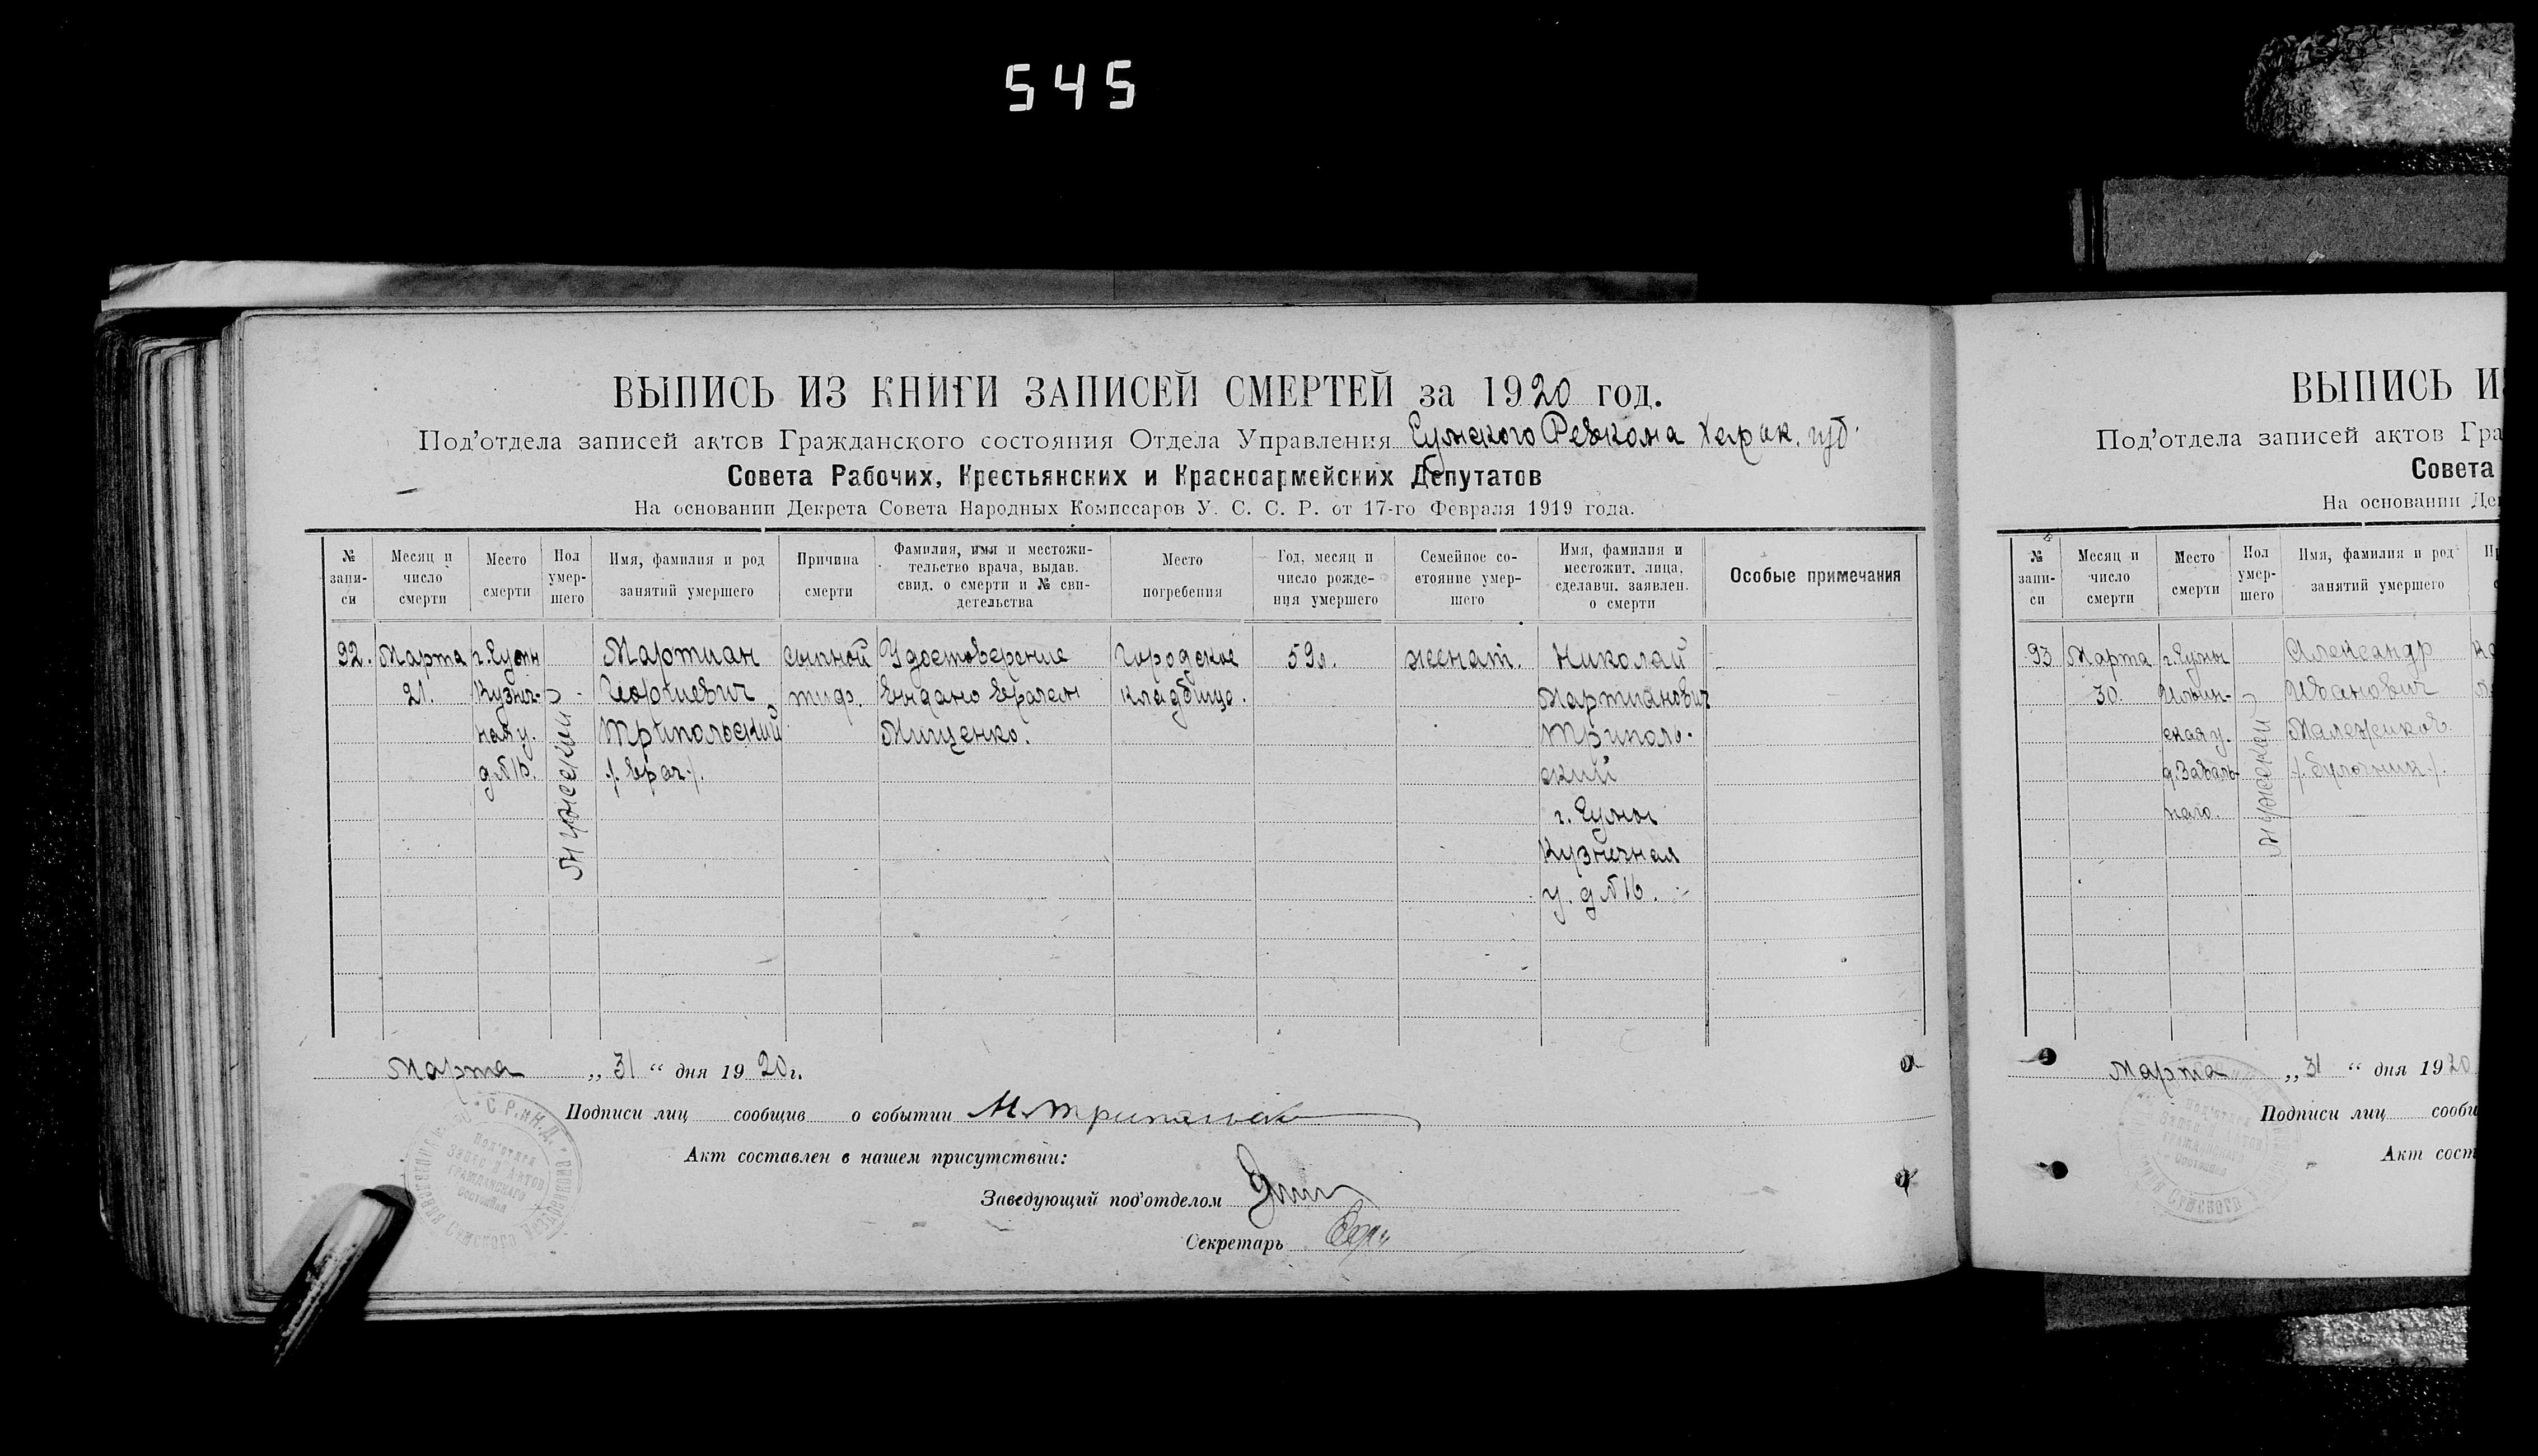 545
ВЫПИСЬ ИЗ КНИГИ ЗАПИСЕЙ СМЕРТЕЙ за 1920 год.
Под'отдела записей актов Гражданского состояния Отдела Управления Сумского Ревкома Харьк. губ.
Совета Рабочих, Крестьянских и Красноармейских Депутатов
На основании Декрета Совета Народных Комиссаров У. С. С. Р. от 17-го Февраля 1919 года.
№ запи-
си
Месяц и
число
смерти
Место
смерти
Пол
умер-
шего
Имя, фамилия и род
занятий умершего
Причина
смерти
Фамилия, имя и местожи-
тельство врача, выдав.
свид. о смерти и № сви-
детельства
Место
погребения
Год, месяц и
число рожде-
ния умершего
Семейное со-
стояние умер-
шего
Имя, фамилия и
местожит. лица,
сделавш. заявлен.
о смерти
Особые примечания
92.
Марта
21.
г. Сумы
Кузнеч-
ная у.
д №16.
Мужской
Мартиан
Георгиевич
Трипольский
/. врач./.
сыпной
тиф.
Удостоверение
выдано врачем
Мищенко.
Городское
кладбище.
59 л.
женат.
Николай
Мартианович
Триполь-
ский
г. Сумы
Кузнечная
у. д №16.
Марта „31“ дня 1920 г.
Подписи лиц сообщив о событии
Акт составлен в нашем присутствии:
Заведующий под'отделом
Секретарь
С.Р. и К.Д.
Под'отдел
Запис й Актов
гражданского
Состояния
Сумского
ВЫПИСЬ ИЗ
Под'отдела записей актов Гра
Совета
На основании Де
№
запи-
си
Месяц и
число
смерти
Место
смерти
Пол
умер-
шего
Имя, фамилия и род
занятий умершего
93
Марта
30.
г. Сумы
Ильин-
ская у.
д. Заваль-
наго.
Мужской
Александр
Иванович
Малеженков
/. булочник./.
Марта „31“ дня 1920
Подписи лиц сообщ
Акт сост